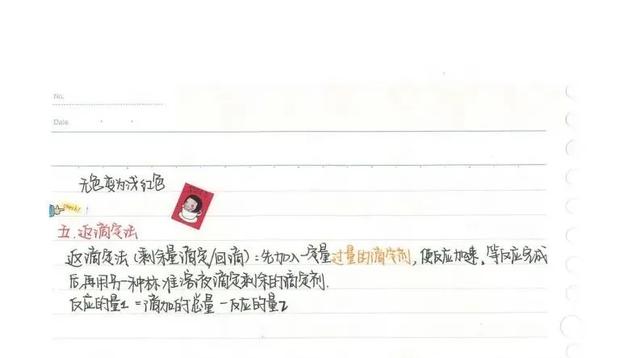 No.
Date
无色变为浅红色
五.返滴定法
返滴定法(剩余量滴定/回滴):先加入一定量过量的滴定剂,使反应加速,等反应完成
后再用另一种标准溶液滴定剩余的滴定剂.
反应的量1=滴加的总量-反应的量2